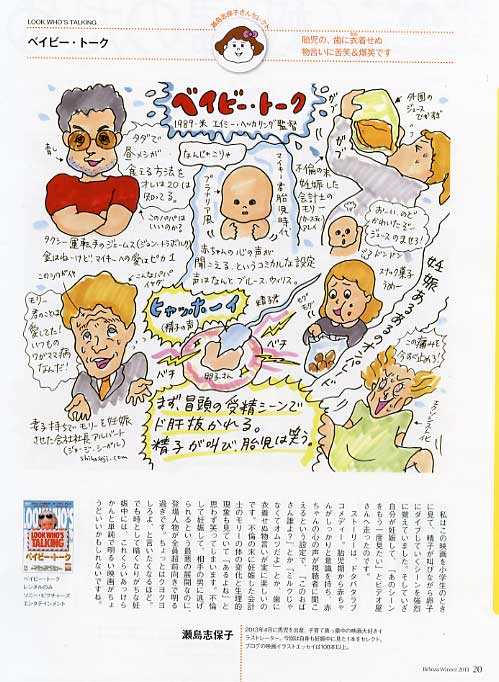 LOOK WHO'S TALKING
ベイビー・トーク
瀬島志保子さんセレクト
胎児の、歯に衣着せぬ
物言いに苦笑&爆笑です
ベイビー・トーク
1989・米 エイミー・ヘッカリング監督
タダで
昼メシが
食える方法を
オレは20は
知ってる。
青し
このパパは
いいのかる
タクシー運転手のジェームス(ジョン・トラボルタ)
金はねーけど、マイキーへの愛はピカ1
なんじゃこりゃ
プラナリア風
マイキー君胎児時代
赤ちゃんの心の声が
聞こえる、というコミカルな設定
声はなんとブルース・ウィリス。
外国の
ジュース
でかすぎ
ガブ
ガブ
不倫の末
妊娠した
会計士の
モリー
(カースティ・
アレイ)
おーい、のど
かわいたぞー
ジュースのませろ!
ドンドン
スナック菓子
うめー
モグ
モグ
妊娠あるあるのオンパレード
この痛みを
今すぐ止めろ!
エクソシストイピ
ヒャッホーイ
(精子の声)
精子君
ペチ
ペチ
卵子さん
モリー
君のことは
愛してた!
いつもの
ワガママ病
なんだ!
こんなパパ
イヤダ
妻子持ちでモリーを妊娠
させた会社社長アルバート
(ジョージ・シーガル)
shihosoji.com
まず冒頭の受精シーンで
ド肝抜かれる。
精子が叫び、胎児は笑う。
私はこの映画を小学生のとき
に見て、精子が叫びながら卵子
にダイブしていくシーンを強烈
に覚えていました。そしていざ
自分が妊娠して、「あのシーン
をもう一度見たい」とビデオ屋
さんへ走ったのです。
ストーリーは、ドタバタラブ
コメディー。胎児期から赤ちゃ
んがしっかりと意識を持ち、赤
ちゃんの心の声が視聴者に聞こ
えるという設定で、「このおば
さん誰よ?」とか「ミルクじゃ
なくてオムツだよ」とか、歯に
衣着せぬ物言いが実に楽しいの
です。不倫の末に妊娠した会計
士のモリーの体の変化と生理的
現象も見ていて「あるよね」と
思わず笑ってしまいます。不倫
して妊娠して、相手の男に逃げ
られるという最悪の展開なのに、
登場人物が全員超前向きで明る
過ぎです。ちょっとはクヨクヨ
しろよ、と言いたくなるほど。
でも時として暗くなりがちな妊
娠中には、これくらいあっけら
かんと単純で明るい映画がちょ
うどいいかもしれないですね。
LOOK WHO'S
TALKING
ベイビー・トーク
ベイビー・トーク
レンタルのみ
ソニー・ピクチャーズ
エンタテインメント
瀬島志保子
2013年4月に男児を出産、子育て真っ最中の映画大好きイ
ラストレーター。今回は自身も妊娠中に見た1本をセレクト。
ブログの映画イラストエッセイは100本以上。
Winter 2013 20